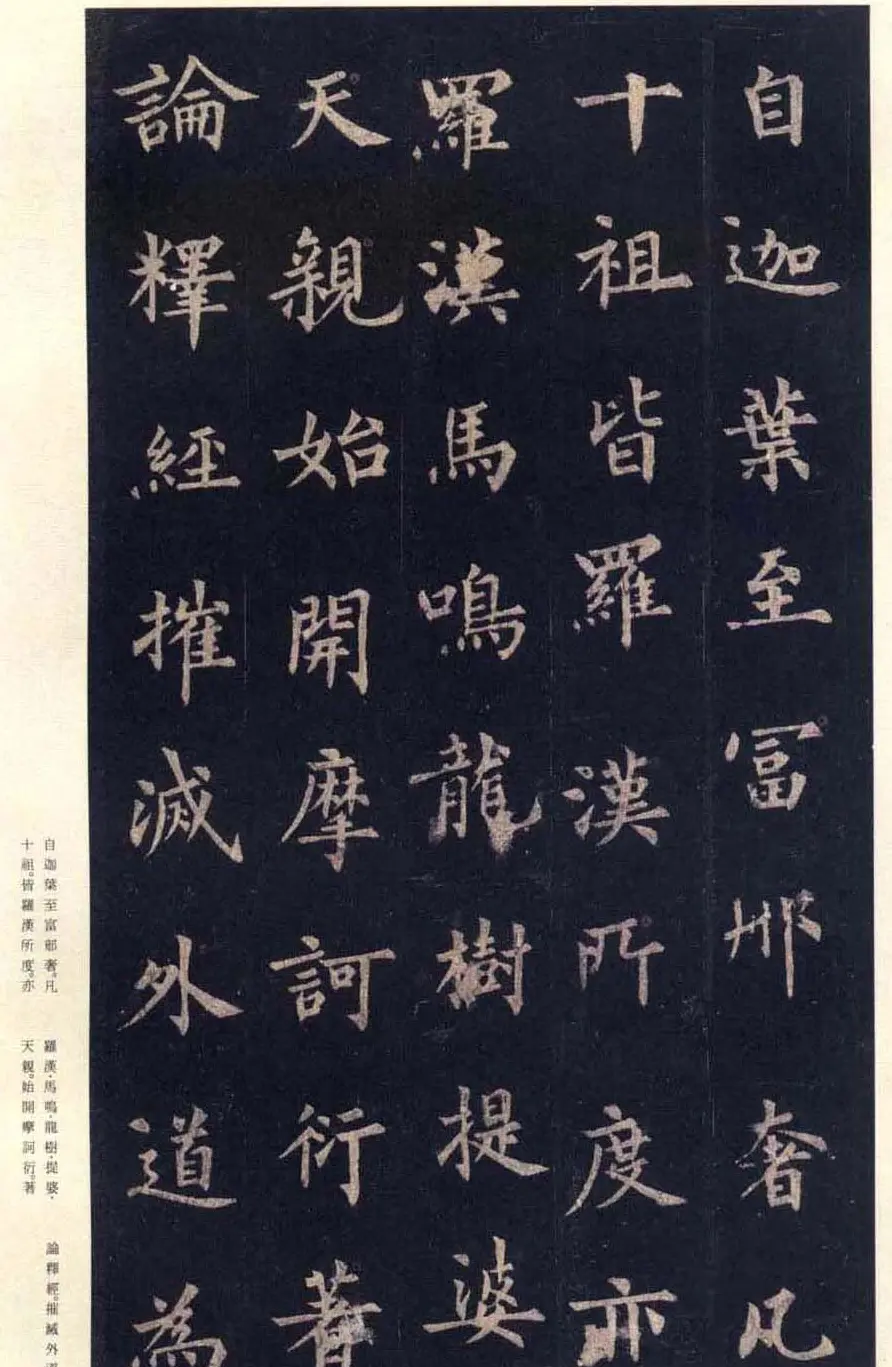 自迦葉至冨𨙻奢凡
十祖皆羅漢所度亦
羅漢馬鳴龍樹提婆
天親始開摩訶衍著
論釋經摧滅外道為
自迦葉至富𨙻奢。凡
十祖。皆羅漢所度。亦
羅漢·馬鳴·龍樹·提婆·
天親。始開摩訶衍。著
論釋經。摧滅外道